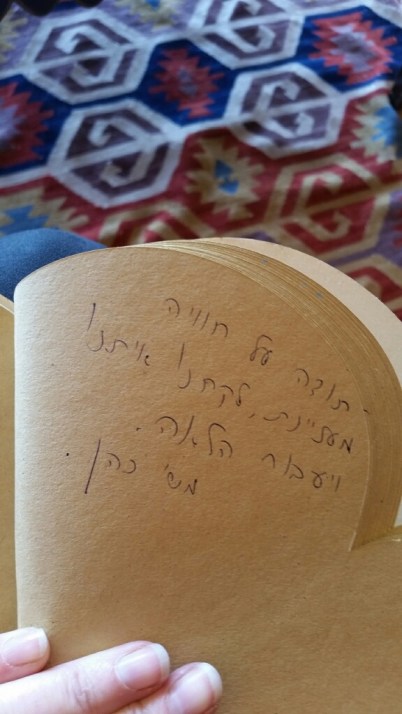 תודה על חוויה
מעניינת, לקחנו איתנו
ויעבור הלאה.
מש' כהן